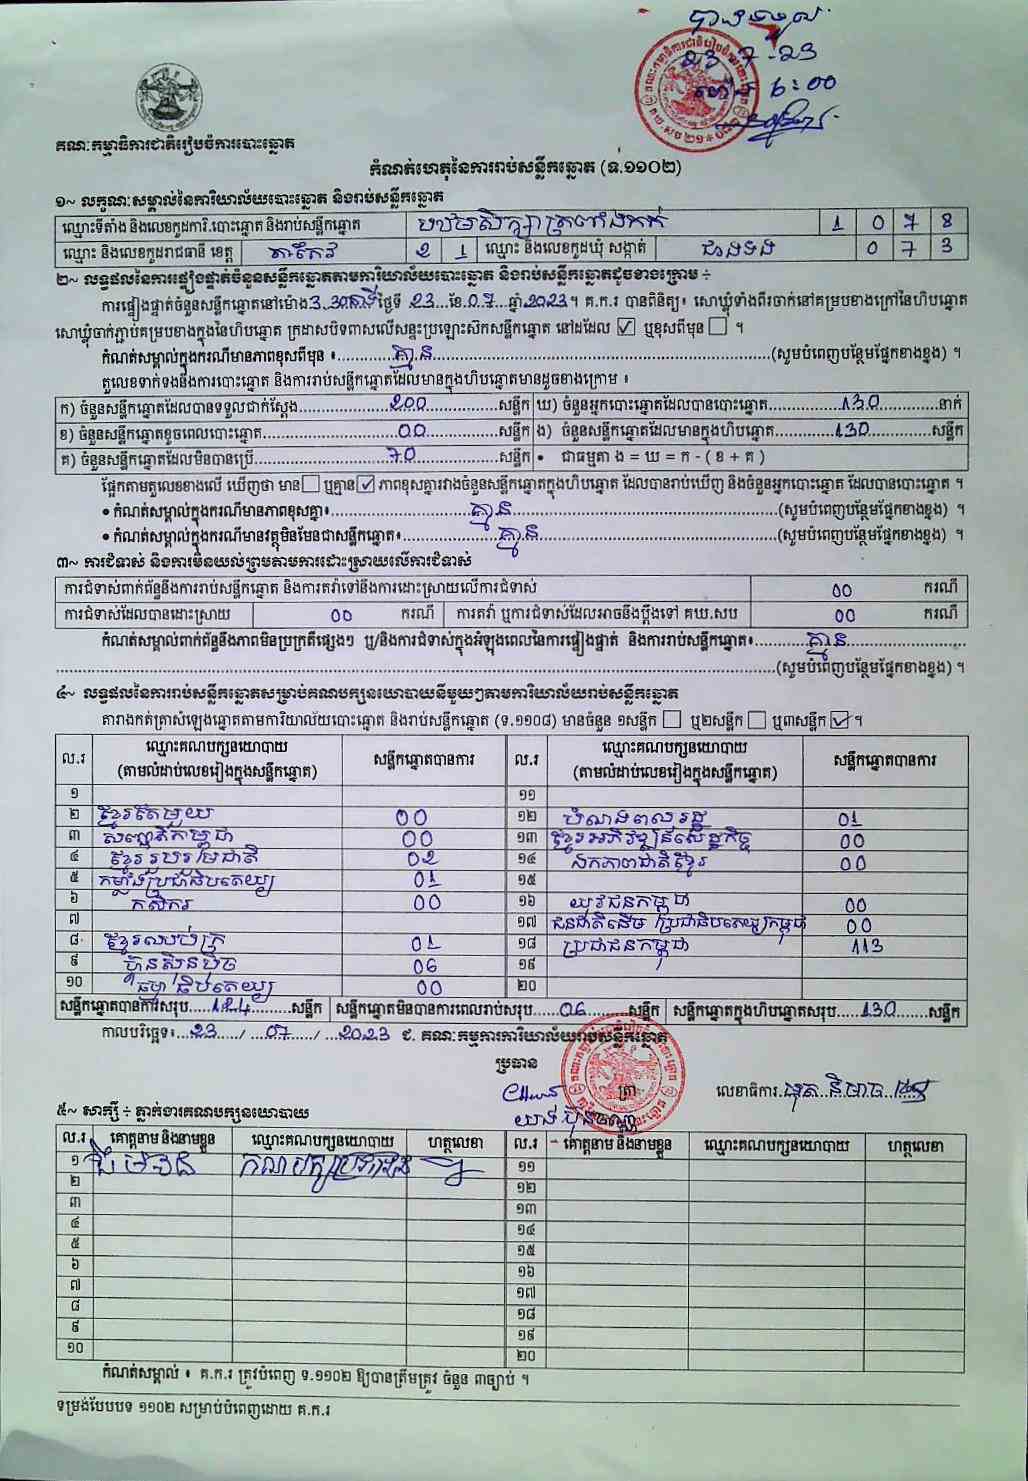 បានទទួល
23 7-23
ម៉ោង 6:00
គណៈកម្មាធិការជាតិរៀបចំការបោះឆ្នោត
កំណត់ហេតុនៃការរាប់សន្លឹកឆ្នោត (ទ.១១០២)
១~ លក្ខណៈសម្គាល់នៃការិយាល័យបោះឆ្នោត និងរាប់សន្លឹកឆ្នោត
ឈ្មោះទីតាំង និងលេខកូដការិ.បោះឆ្នោត និងរាប់សន្លឹកឆ្នោត បឋមសិក្សាត្រពាំងកក់ 1 0 7 8
ឈ្មោះ និងលេខកូដរាជធានី ខេត្ត តាកែវ 2 1 ឈ្មោះ និងលេខកូដឃុំ សង្កាត់ ជាងទង 0 7 3
២~ លទ្ធផលនៃការផ្ទៀងផ្ទាត់ចំនួនសន្លឹកឆ្នោតតាមការិយាល័យបោះឆ្នោត និងរាប់សន្លឹកឆ្នោតដូចខាងក្រោម ÷
ការផ្ទៀងផ្ទាត់ចំនួនសន្លឹកឆ្នោតនៅម៉ោង 3.30នាទី ថ្ងៃទី 23 ខែ 07 ឆ្នាំ 2023 ។ គ.ក.រ បានពិនិត្យ៖ សោឃ្លុំទាំងពីរចាក់នៅគម្របខាងក្រៅនៃហិបឆ្នោត
សោឃ្លុំចាក់ភ្ជាប់គម្របខាងក្នុងនៃហិបឆ្នោត ក្រដាសបិទពាសលើសន្ទះប្រឡោះស៊កសន្លឹកឆ្នោត នៅដដែល ☑ ឬខុសពីមុន ☐ ។
កំណត់សម្គាល់ក្នុងករណីមានភាពខុសពីមុន ៖ គ្មាន (សូមបំពេញបន្ថែមផ្នែកខាងខ្នង) ។
តួលេខទាក់ទងនឹងការបោះឆ្នោត និងការរាប់សន្លឹកឆ្នោតដែលមានក្នុងហិបឆ្នោតមានដូចខាងក្រោម ៖
ក) ចំនួនសន្លឹកឆ្នោតដែលបានទទួលជាក់ស្ដែង 200 សន្លឹក ឃ) ចំនួនអ្នកបោះឆ្នោតដែលបានបោះឆ្នោត 130 នាក់
ខ) ចំនួនសន្លឹកឆ្នោតខូចពេលបោះឆ្នោត 00 សន្លឹក ង) ចំនួនសន្លឹកឆ្នោតដែលមានក្នុងហិបឆ្នោត 130 សន្លឹក
គ) ចំនួនសន្លឹកឆ្នោតដែលមិនបានប្រើ 70 សន្លឹក • ជាធម្មតា ង = ឃ = ក - ( ខ + គ )
ផ្អែកតាមតួលេខខាងលើ ឃើញថា មាន ☐ ឬគ្មាន ☑ ភាពខុសគ្នារវាងចំនួនសន្លឹកឆ្នោតក្នុងហិបឆ្នោត ដែលបានរាប់ឃើញ និងចំនួនអ្នកបោះឆ្នោត ដែលបានបោះឆ្នោត ។
• កំណត់សម្គាល់ក្នុងករណីមានភាពខុសគ្នា៖ គ្មាន (សូមបំពេញបន្ថែមផ្នែកខាងខ្នង) ។
• កំណត់សម្គាល់ក្នុងករណីមានវត្ថុមិនមែនជាសន្លឹកឆ្នោត៖ គ្មាន (សូមបំពេញបន្ថែមផ្នែកខាងខ្នង) ។
៣~ ការជំទាស់ និងការមិនយល់ព្រមតាមការដោះស្រាយលើការជំទាស់
ការជំទាស់ពាក់ព័ន្ធនឹងការរាប់សន្លឹកឆ្នោត និងការតវ៉ាទៅនឹងការដោះស្រាយលើការជំទាស់ 00 ករណី
ការជំទាស់ដែលបានដោះស្រាយ 00 ករណី ការតវ៉ា ឬការជំទាស់ដែលអាចនឹងប្ដឹងទៅ គឃ.សប 00 ករណី
កំណត់សម្គាល់ពាក់ព័ន្ធនឹងភាពមិនប្រក្រតីផ្សេងៗ ឬ/និងការជំទាស់ក្នុងអំឡុងពេលនៃការផ្ទៀងផ្ទាត់ និងការរាប់សន្លឹកឆ្នោត៖ គ្មាន
(សូមបំពេញបន្ថែមផ្នែកខាងខ្នង) ។
៤~ លទ្ធផលនៃការរាប់សន្លឹកឆ្នោតសម្រាប់គណបក្សនយោបាយនីមួយៗតាមការិយាល័យរាប់សន្លឹកឆ្នោត
តារាងកត់ត្រាសំឡេងឆ្នោតតាមការិយាល័យបោះឆ្នោត និងរាប់សន្លឹកឆ្នោត (ទ.១១០៨) មានចំនួន ១សន្លឹក ☐ ឬ២សន្លឹក ☐ ឬ៣សន្លឹក ☑ ។
ល.រ ឈ្មោះគណបក្សនយោបាយ (តាមលំដាប់លេខរៀងក្នុងសន្លឹកឆ្នោត) សន្លឹកឆ្នោតបានការ ល.រ ឈ្មោះគណបក្សនយោបាយ (តាមលំដាប់លេខរៀងក្នុងសន្លឹកឆ្នោត) សន្លឹកឆ្នោតបានការ
១ ១១
២ ខ្មែរតែមួយ 00 ១២ បំណងពលរដ្ឋ 01
៣ សញ្ជាតិកម្ពុជា 00 ១៣ ខ្មែរអភិវឌ្ឍន៍សេដ្ឋកិច្ច 00
៤ ខ្មែររួបរួមជាតិ 02 ១៤ ឯកភាពជាតិខ្មែរ 00
៥ កម្លាំងប្រជាធិបតេយ្យ 01 ១៥
៦ កសិករ 00 ១៦ យុវជនកម្ពុជា 00
៧ ១៧ ជនជាតិដើម ប្រជាធិបតេយ្យកម្ពុជា 00
៨ ខ្មែរឈប់ក្រ 01 ១៨ ប្រជាជនកម្ពុជា 113
៩ ហ៊្វុនស៊ិនប៉ិច 06 ១៩
១០ ធម្មាធិបតេយ្យ 00 ២០
សន្លឹកឆ្នោតបានការសរុប 124 សន្លឹក សន្លឹកឆ្នោតមិនបានការពេលរាប់សរុប 06 សន្លឹក សន្លឹកឆ្នោតក្នុងហិបឆ្នោតសរុប 130 សន្លឹក
កាលបរិច្ឆេទ៖ 23 / 07 / 2023 ជ. គណៈកម្មការការិយាល័យរាប់សន្លឹកឆ្នោត
ប្រធាន
ត្រា លេខាធិការ
៥~ សាក្សី ÷ ភ្នាក់ងារគណបក្សនយោបាយ
ល.រ គោត្តនាម និងនាមខ្លួន ឈ្មោះគណបក្សនយោបាយ ហត្ថលេខា ល.រ គោត្តនាម និងនាមខ្លួន ឈ្មោះគណបក្សនយោបាយ ហត្ថលេខា
១ ១១
២ ១២
៣ ១៣
៤ ១៤
៥ ១៥
៦ ១៦
៧ ១៧
៨ ១៨
៩ ១៩
១០ ២០
កំណត់សម្គាល់ ៖ គ.ក.រ ត្រូវបំពេញ ទ.១១០២ ឱ្យបានត្រឹមត្រូវ ចំនួន ៣ច្បាប់ ។
ទម្រង់បែបបទ ១១០២ សម្រាប់បំពេញដោយ គ.ក.រ